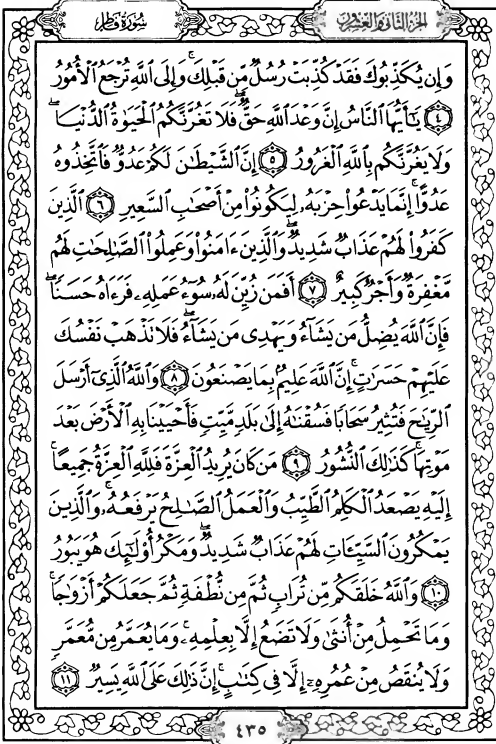 سُورَةُ فَاطِرٍ
الجُزْءُ الثَّانِي وَالعِشْرُونَ
وَإِن يُكَذِّبُوكَ فَقَدْ كُذِّبَتْ رُسُلٌ مِّن قَبْلِكَ ۚ وَإِلَى ٱللَّهِ تُرْجَعُ ٱلْأُمُورُ
٤ يَٰٓأَيُّهَا ٱلنَّاسُ إِنَّ وَعْدَ ٱللَّهِ حَقٌّ ۖ فَلَا تَغُرَّنَّكُمُ ٱلْحَيَوٰةُ ٱلدُّنْيَا ۖ
وَلَا يَغُرَّنَّكُم بِٱللَّهِ ٱلْغَرُورُ ٥ إِنَّ ٱلشَّيْطَٰنَ لَكُمْ عَدُوٌّ فَٱتَّخِذُوهُ
عَدُوًّا ۚ إِنَّمَا يَدْعُوا۟ حِزْبَهُۥ لِيَكُونُوا۟ مِنْ أَصْحَٰبِ ٱلسَّعِيرِ ٦ ٱلَّذِينَ
كَفَرُوا۟ لَهُمْ عَذَابٌ شَدِيدٌ ۖ وَٱلَّذِينَ ءَامَنُوا۟ وَعَمِلُوا۟ ٱلصَّٰلِحَٰتِ لَهُم
مَّغْفِرَةٌ وَأَجْرٌ كَبِيرٌ ٧ أَفَمَن زُيِّنَ لَهُۥ سُوٓءُ عَمَلِهِۦ فَرَءَاهُ حَسَنًا ۖ
فَإِنَّ ٱللَّهَ يُضِلُّ مَن يَشَآءُ وَيَهْدِى مَن يَشَآءُ ۖ فَلَا تَذْهَبْ نَفْسُكَ
عَلَيْهِمْ حَسَرَٰتٍ ۚ إِنَّ ٱللَّهَ عَلِيمٌۢ بِمَا يَصْنَعُونَ ٨ وَٱللَّهُ ٱلَّذِىٓ أَرْسَلَ
ٱلرِّيَٰحَ فَتُثِيرُ سَحَابًا فَسُقْنَٰهُ إِلَىٰ بَلَدٍ مَّيِّتٍ فَأَحْيَيْنَا بِهِ ٱلْأَرْضَ بَعْدَ
مَوْتِهَا ۚ كَذَٰلِكَ ٱلنُّشُورُ ٩ مَن كَانَ يُرِيدُ ٱلْعِزَّةَ فَلِلَّهِ ٱلْعِزَّةُ جَمِيعًا ۚ
إِلَيْهِ يَصْعَدُ ٱلْكَلِمُ ٱلطَّيِّبُ وَٱلْعَمَلُ ٱلصَّٰلِحُ يَرْفَعُهُۥ ۚ وَٱلَّذِينَ
يَمْكُرُونَ ٱلسَّيِّـَٔاتِ لَهُمْ عَذَابٌ شَدِيدٌ ۖ وَمَكْرُ أُو۟لَٰٓئِكَ هُوَ يَبُورُ
١٠ وَٱللَّهُ خَلَقَكُم مِّن تُرَابٍ ثُمَّ مِن نُّطْفَةٍ ثُمَّ جَعَلَكُمْ أَزْوَٰجًا ۚ
وَمَا تَحْمِلُ مِنْ أُنثَىٰ وَلَا تَضَعُ إِلَّا بِعِلْمِهِۦ ۚ وَمَا يُعَمَّرُ مِن مُّعَمَّرٍ
وَلَا يُنقَصُ مِنْ عُمُرِهِۦٓ إِلَّا فِى كِتَٰبٍ ۚ إِنَّ ذَٰلِكَ عَلَى ٱللَّهِ يَسِيرٌ ١١
٤٣٥